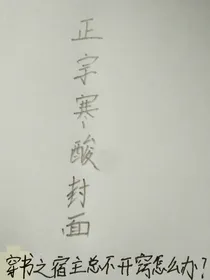 正宗寒酸封面
穿书之宿主总不开窍怎么办？